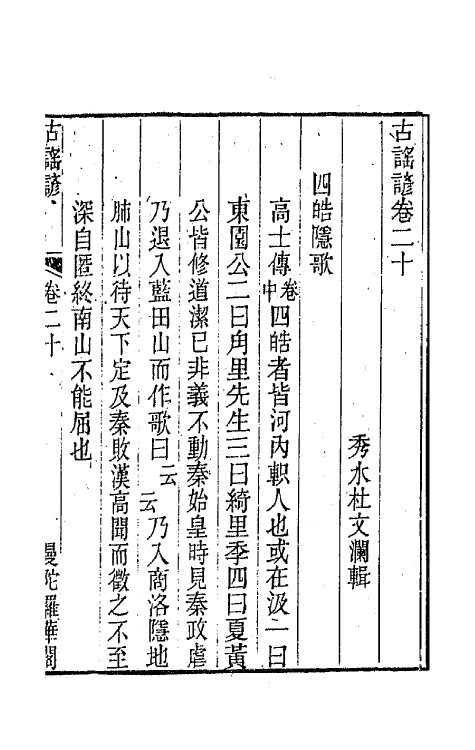 古謠諺卷二十
秀水杜文瀾輯
四皓隱歌
高士傳卷中四皓者皆河內軹人也或在汲一曰
東園公二曰角里先生三曰綺里季四曰夏黃
公皆修道潔已非義不動秦始皇時見秦政虐
乃退入藍田山而作歌曰云云乃入商洛隱地
肺山以待天下定及秦敗漢高聞而徵之不至
深自匿終南山不能屈也
古謠諺 卷二十 曼陀羅華閣